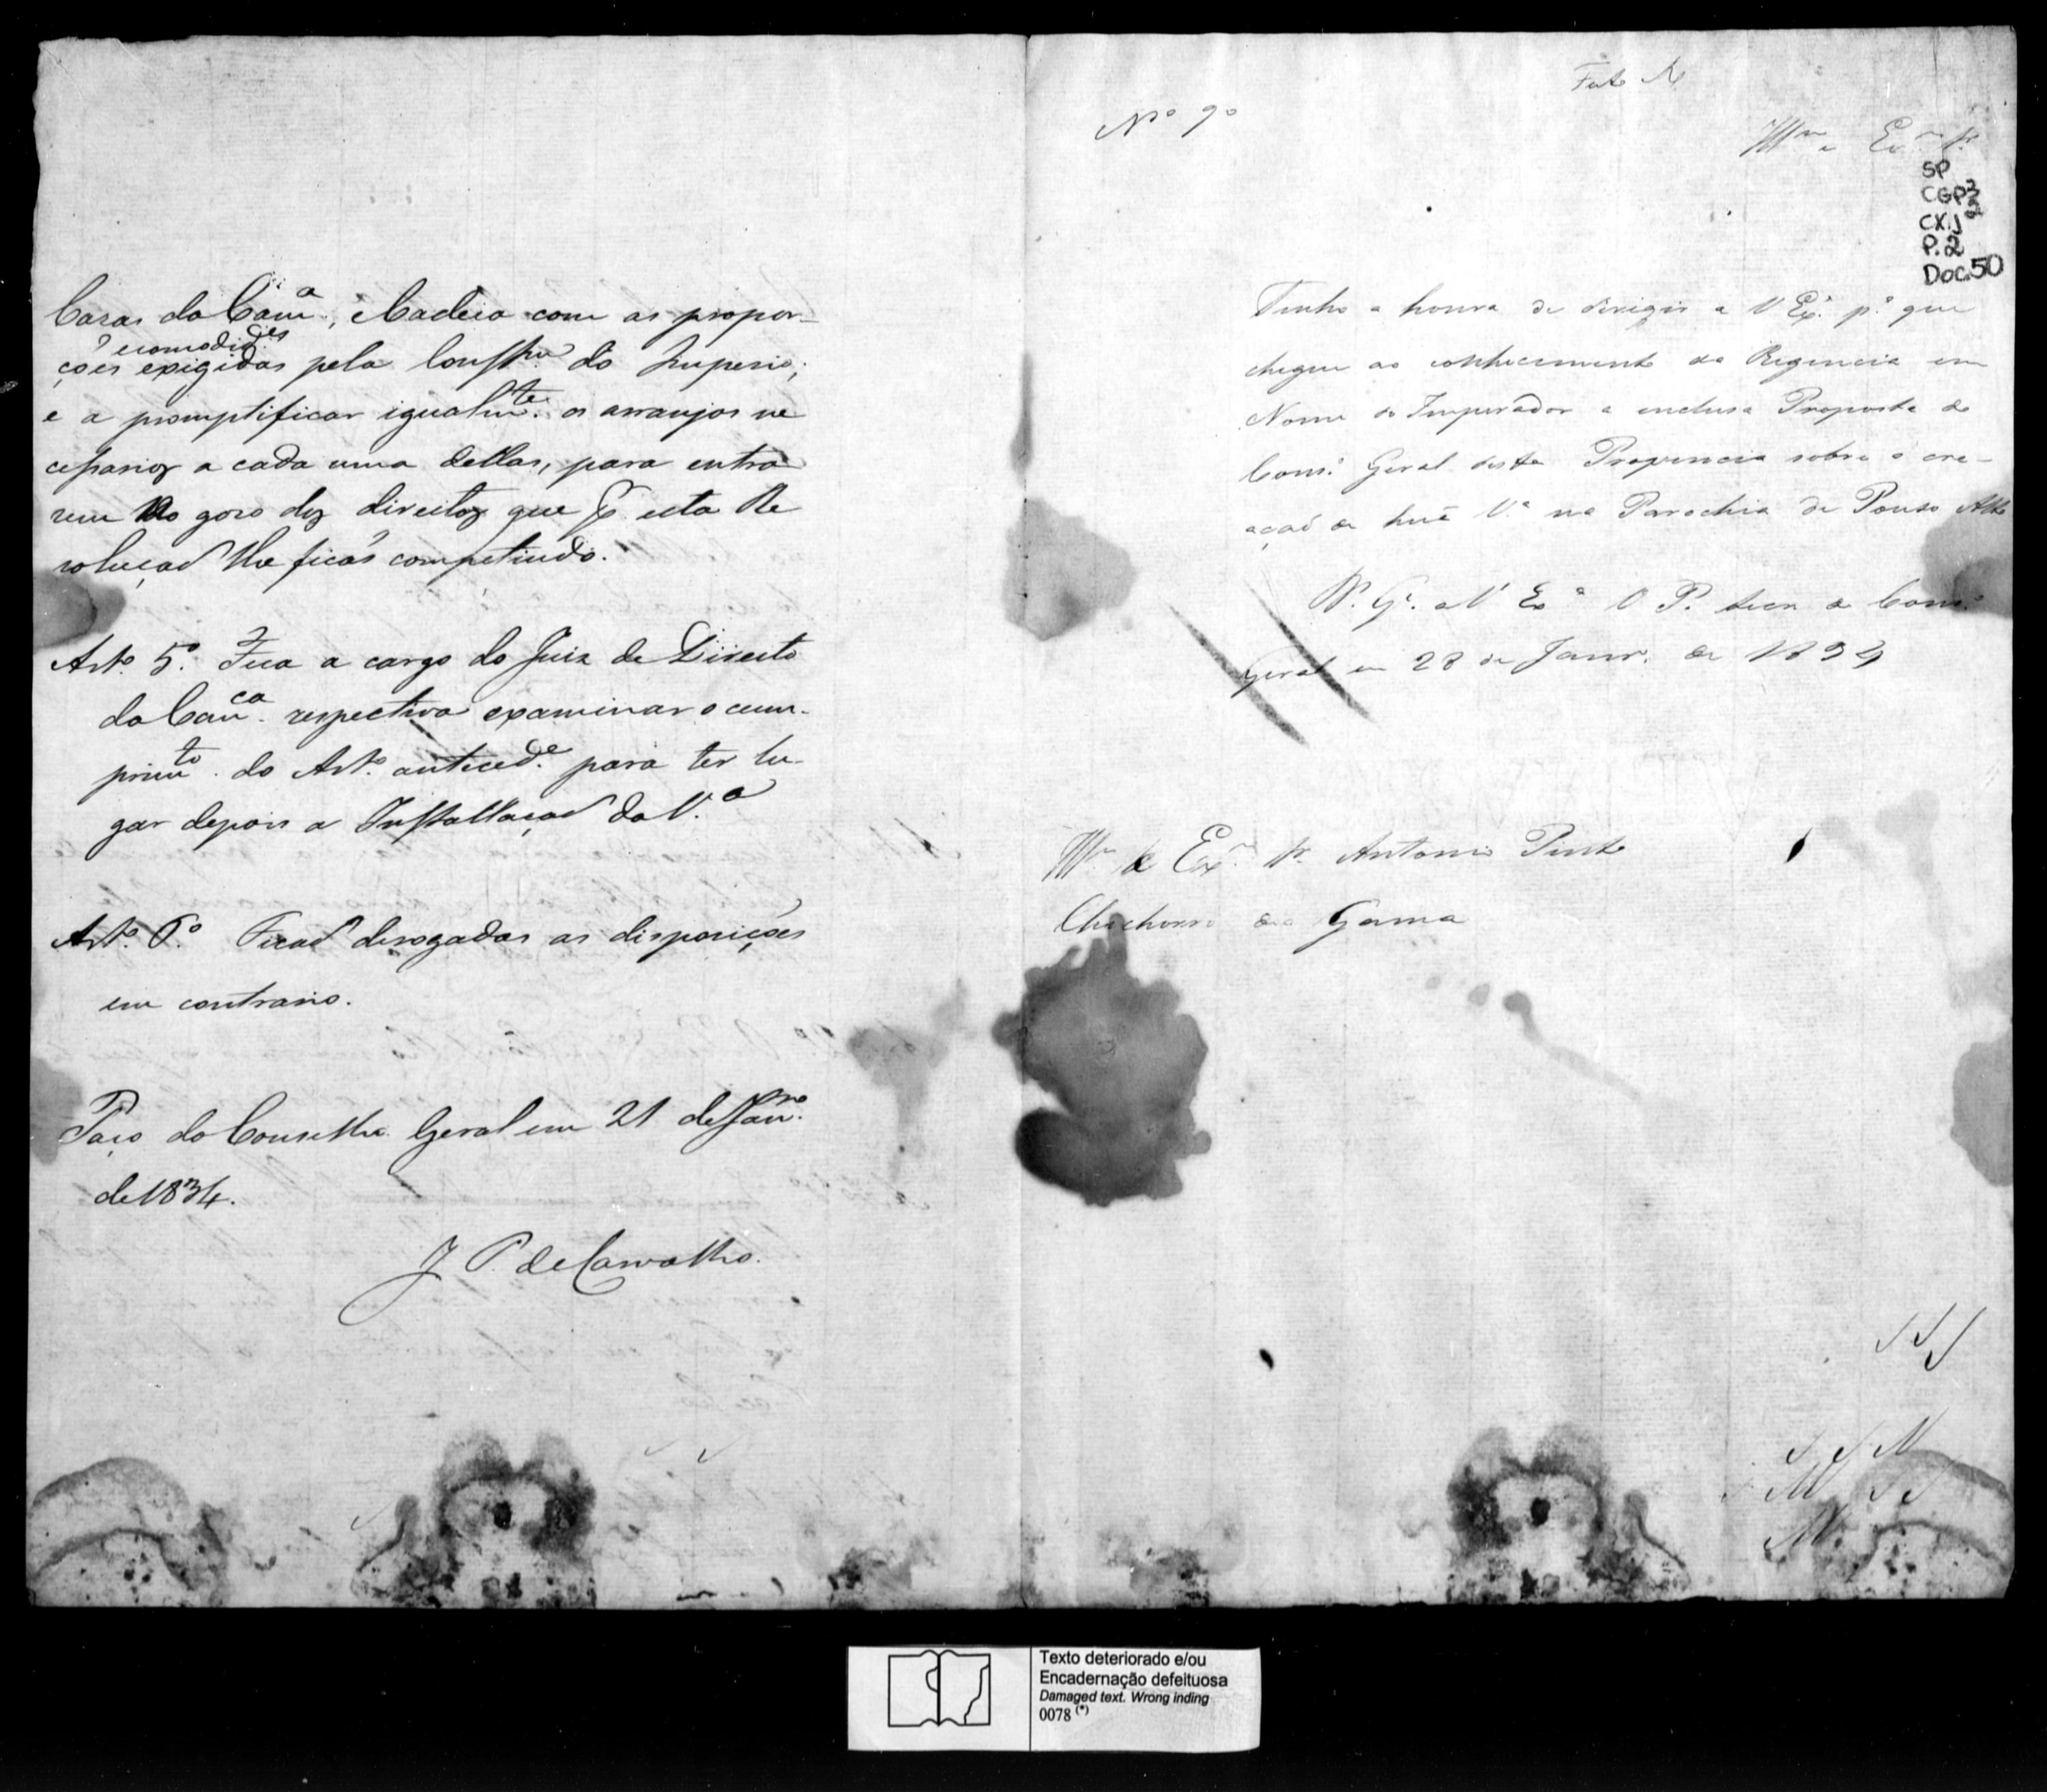 Cazas da Cam.ª, e Cadeia com as propor-
e comodid.es
ções exigidas pela Constm. do Imperio;
e a promptificar igualm.te os arranjos ne
cessarios a cada uma dellas, para entra
rem no gozo dos direitos que p.r esta Re
solução lhe ficão competindo.
Art.º 5.º Fica a cargo do Juiz de Direito
da Com.ca respectiva examinar o cum-
prim.to do Art.º anteced.e para ter lu-
gar depois a Installação da V.ª
Art.º 6.º Ficão derogadas as disposições
em contrario.
Paço do Conselho Geral em 21 de Jan.ro
de 1834.
J. P. de Carvalho.
N.º 9º
Ill.mo e Ex.mo Sr.
SP
CGP
CX.1
P.2
Doc.50
Tenho a honra de dirigir a V Ex.ª p.ª que
chegue ao conhecimento da Regencia em
Nome do Imperador a inclusa Proposta do
Cons.º Geral desta Provincia sobre a cre-
ação de huã V.ª na Parochia de Pouso Alto
D.s G.e a V Ex.ª P. do Cons.º
Geral em 28 de Janr. de 1834
Ill.mo e Ex.mo Sr. Antonio Pinto
Chichorro da Gama
Texto deteriorado e/ou
Encadernação defeituosa
Damaged text. Wrong inding
0078 (*)